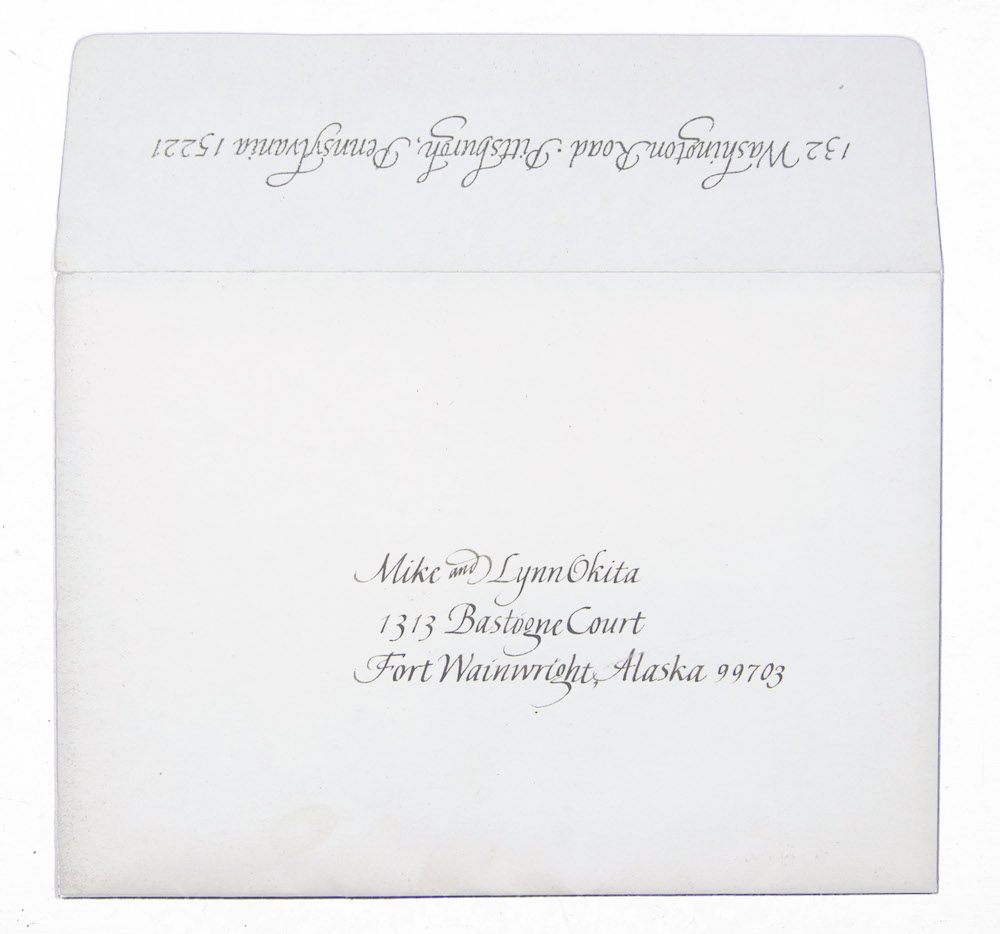 132 Washington Road · Pittsburgh, Pennsylvania 15221
Mike and Lynn Okita
1313 Bastogne Court
Fort Wainwright, Alaska 99703